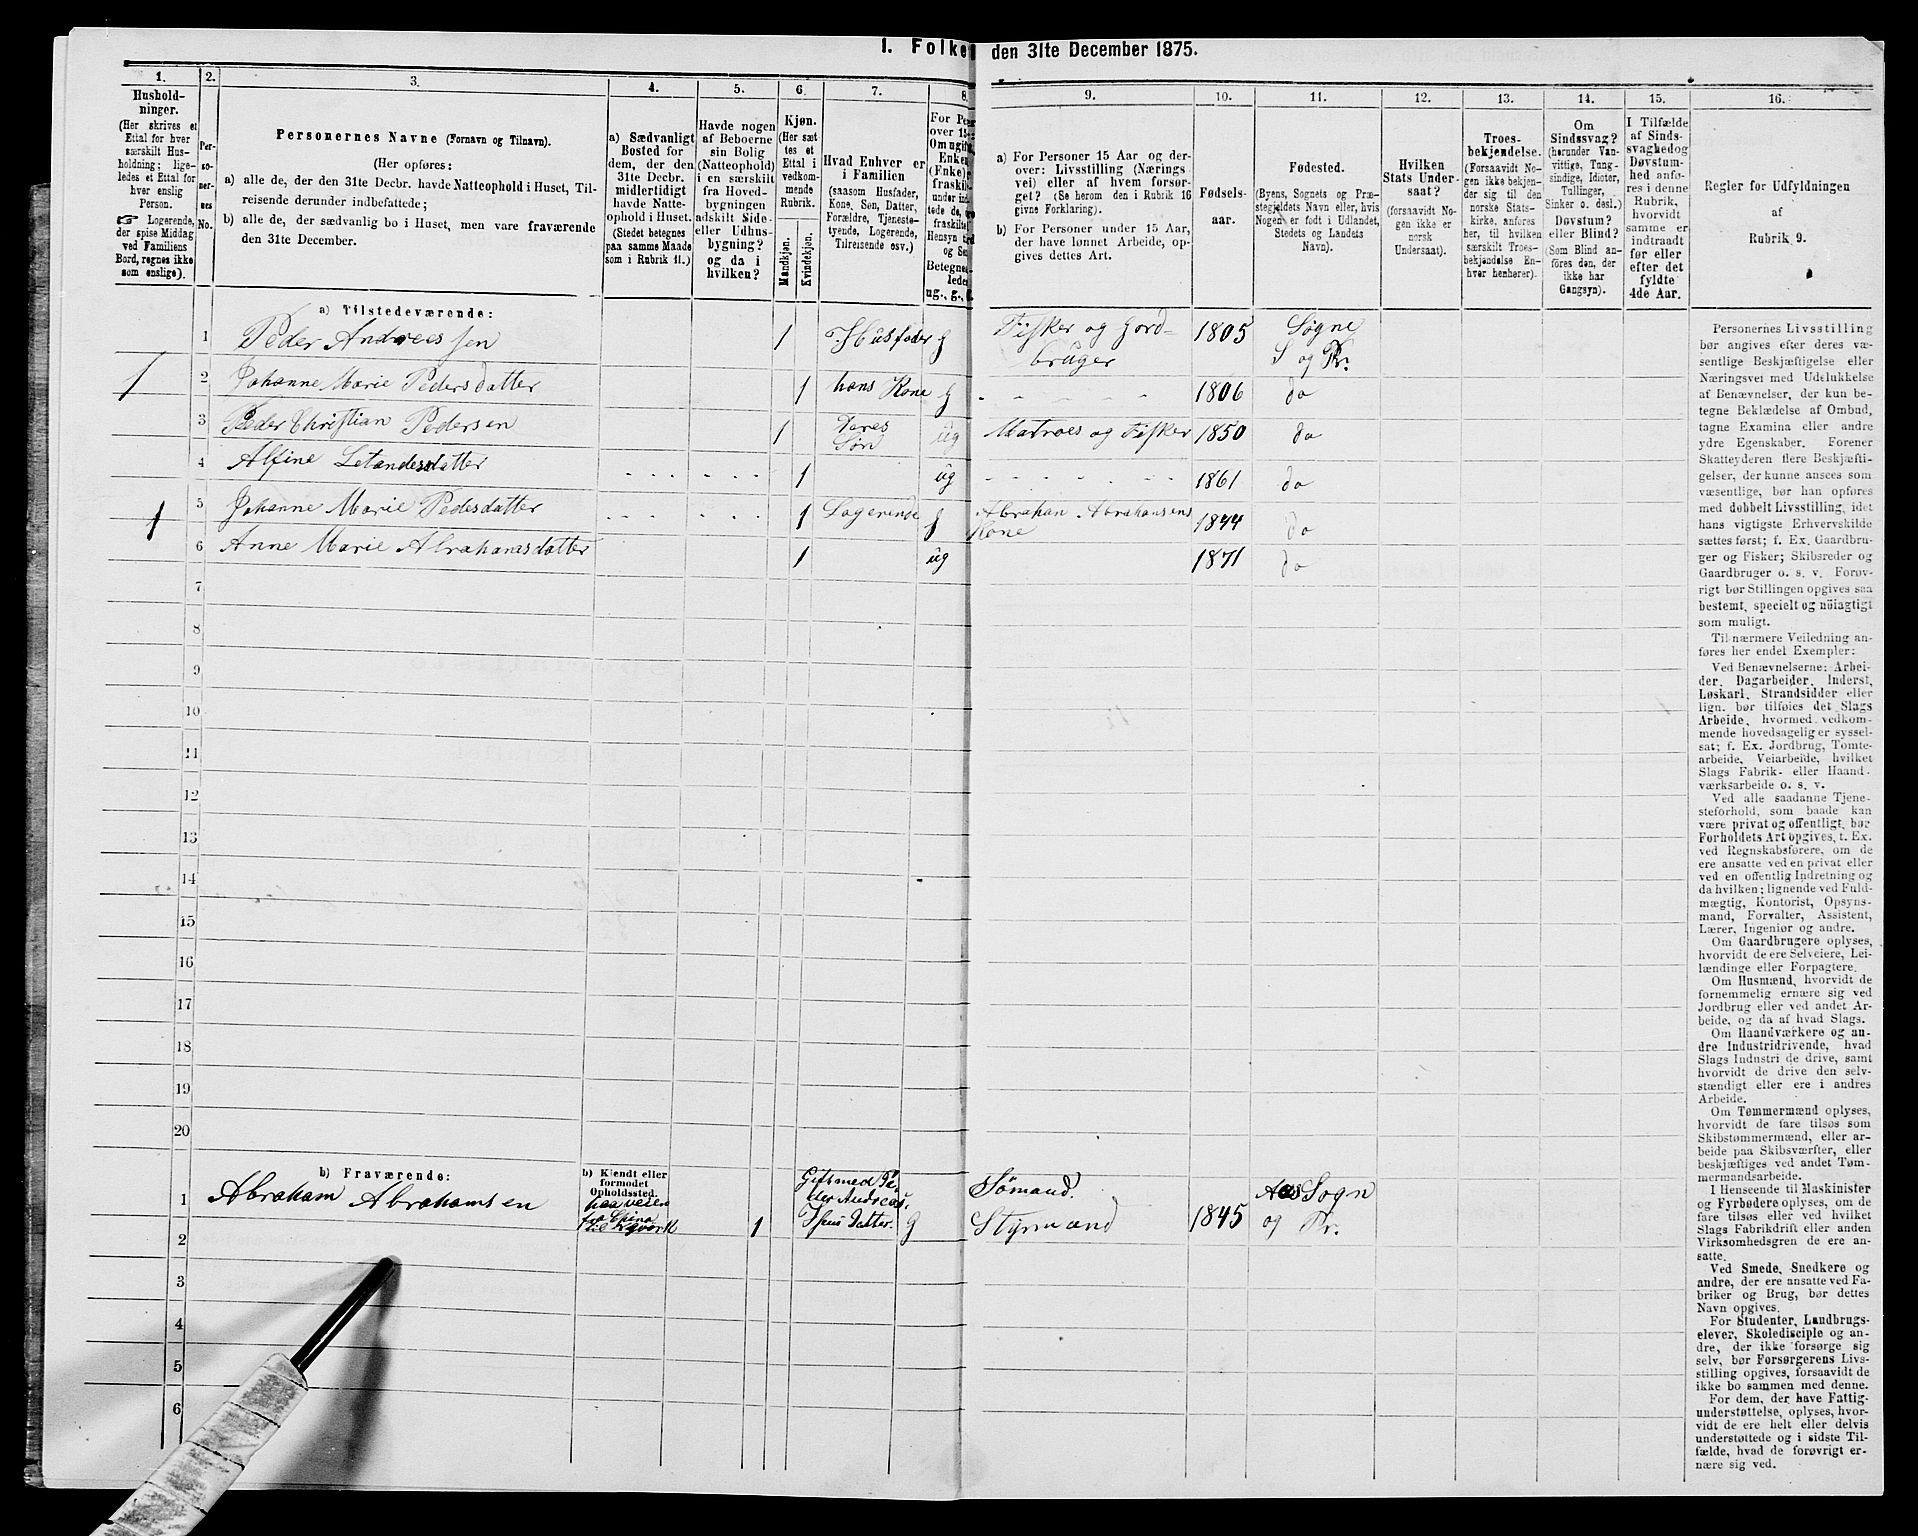 1. Folke den 31te December 1875.
1. 2. 3. 4. 5. 6. 7. 8. 9. 10. 11. 12. 13. 14. 15. 16.
Hushold-
ninger.
(Her skrives et
Ettal for hver
særskilt Hus-
holdning; lige-
ledes et Ettal for
hver enslig
Person.
Logerende,
der spise Middag
ved Familiens
Bord, regnes ikke
som enslige).
Per-
so-
ner-
nes
No.
Personernes Navne (Fornavn og Tilnavn).
(Her opføres:
a) alle de, der den 31te Decbr. havde Natteophold i Huset, Til-
reisende derunder indbefattede;
b) alle de, der sædvanlig bo i Huset, men vare fraværende
den 31te December.
a) Sædvanligt
Bosted for
dem, der den
31te Decbr.
midlertidigt
havde Natte-
ophold i Huset.
(Stedet betegnes
paa samme Maade
som i Rubrik 11.)
Havde nogen
af Beboerne
sin Bolig
(Natteophold)
i en særskilt
fra Hoved-
bygningen
adskilt Side-
eller Udhus-
bygning?
og da i
hvilken?
Kjøn.
(Her sæt-
tes et
Ettal i
vedkom-
mende
Rubrik.
Mandkjøn.
Kvindekjøn.
Hvad Enhver er
i Familien
(saasom Husfader,
Kone, Søn, Datter,
Forældre, Tjeneste-
tyende, Logerende,
Tilreisende osv.)
For Pe
over 15
Om ugift
Enke
(Enke)
fraskilt
under ind
tede de,
fraskilte
Hensyn til
og Se
Betegne
lede
ug., g.,
a) For Personer 15 Aar og der-
over: Livsstilling (Nærings
vei) eller af hvem forsør-
get? (Se herom den i Rubrik 16
givne Forklaring).
b) For Personer under 15 Aar,
der have lønnet Arbeide, op-
gives dettes Art.
Fødsels-
aar.
Fødested.
(Byens, Sognets og Præ-
stegjeldets Navn eller, hvis
Nogen er født i Udlandet,
Stedets og Landets
Navn).
Hvilken
Stats Under-
saat?
(forsaavidt No-
gen ikke er
norsk
Undersaat).
Troes-
bekjendelse.
(Forsaavidt No-
gen ikke bekjen-
der sig til den
norske Stats-
kirke, anføres
her, til hvilken
særskilt Troes-
bekjendelse En-
hver henhører).
Om
Sindssvag?
(herunder Van-
vittige, Tung-
sindige, Idioter,
Tullinger,
Sinker o. desl.)
Døvstum?
eller Blind?
(Som Blind an-
føres den, der
ikke har
Gangsyn).
I Tilfælde
af Sinds-
svaghed og
Døvstum-
hed anfø-
res i denne
Rubrik,
hvorvidt
samme er
indtraadt
før eller
efter det
fyldte
4de Aar.
Regler for Udfyldningen
af
Rubrik 9.
a) Tilstedeværende:
1 Peder Andreessen 1 Husfader g Fisker og Jord-
bruger 1805 Søgne
S og Pr.
1
2 Johanne Marie Pedersdatter 1 hans Kone g 1806 do
3 Peder Christian Pedersen 1 Deres
Søn ug Matroes og Fisker 1850 do
4 Alfine 1 ug 1861 do
1 5 Johanne Marie Pedesdatter 1 Logerende g Abrahan Abrahansens
Kone 1844 do
6 Anne Marie Abrahamsdatter 1 ug 1871 do
7
8
9
10
11
12
13
14
15
16
17
18
19
20
b) Fraværende:
b) Kjendt eller
formodet
Opholdssted.
1 Abraham Abrahamsen paa veien
fra China
til Nyvork 1 Gift med Pe-
der Andreas-
sens Datter. g Sømand.
Styrmand 1845 Aas Sogn
og Pr.
2
3
4
5
6
Personernes Livsstilling
bør angives efter deres væ-
sentlige Beskjæftigelse eller
Næringsvei med Udelukkelse
af Benævnelser, der kun be-
tegne Beklædelse af Ombud,
tagne Examina eller andre
ydre Egenskaber. Forener
Skatteyderen flere Beskjæfti-
gelser, der kunne ansees som
væsentlige, bør han opføres
med dobbelt Livsstilling, idet
hans vigtigste Erhvervskilde
sættes først; f. Ex. Gaardbru-
ger og Fisker; Skibsreder og
Gaardbruger o. s. v. Forøv-
rigt bør Stillingen opgives saa
bestemt, specielt og nöiagtigt
som muligt.
Til nærmere Veiledning an-
føres her endel Exempler:
Ved Benævnelserne: Arbei-
der, Dagarbeider, Inderst,
Løskarl, Strandsidder eller
lign. bør tilføies det Slags
Arbeide, hvormed vedkom-
mende hovedsagelig er syssel-
sat; f. Ex. Jordbrug, Tomte-
arbeide, Veiarbeide, hvilket
Slags Fabrik- eller Haand-
værksarbeide o. s. v.
Ved alle saadanne Tjene-
steforhold, som baade kan
være privat og offentligt, bør
Forholdets Art opgives, t. Ex.
ved Regnskabsførere, om de
ere ansatte ved en privat eller
ved en offentlig Indretning og
da hvilken; lignende ved Fuld-
mægtig, Kontorist, Opsyns-
mand, Forvalter, Assistent,
Lærer, Ingeniør og andre.
Om Gaardbrugere oplyses,
hvorvidt de ere Selveiere, Lei-
lændinge eller Forpagtere.
Om Husmænd, hvorvidt de
fornemmelig ernære sig ved
Jordbrug eller ved andet Ar-
beide, og da af hvad Slags.
Om Haandværkere og an-
dre Industridrivende, hvad
Slags Industri de drive, samt
hvorvidt de drive den selv-
stændigt eller ere i andres
Arbeide.
Om Tømmermænd oplyses,
hvorvidt de fare tilsøs som
Skibstømmermænd, eller ar-
beide paa Skibsværfter, eller
beskjæftiges ved andet Tøm-
mermandsarbeide.
I Henseende til Maskinister
og Fyrbødere oplyses, om de
fare tilsøs eller ved hvilket
Slags Fabrikdrift eller anden
Virksomhedsgren de ere an-
satte.
Ved Smede, Snedkere og
andre, der ere ansatte ved Fa-
briker og Brug, bør dettes
Navn opgives.
For Studenter, Landbrugs-
elever, Skoledisciple og an-
dre, der ikke forsørge sig
selv, bør Forsørgerens Livs-
stilling opgives, forsaavidt de
ikke bo sammen med denne.
For dem, der have Fattig-
understøttelse, oplyses, hvor-
vidt de ere helt eller delvis
understøttede og i sidste Til-
fælde, hvad de forøvrigt er-
nære sig ved.